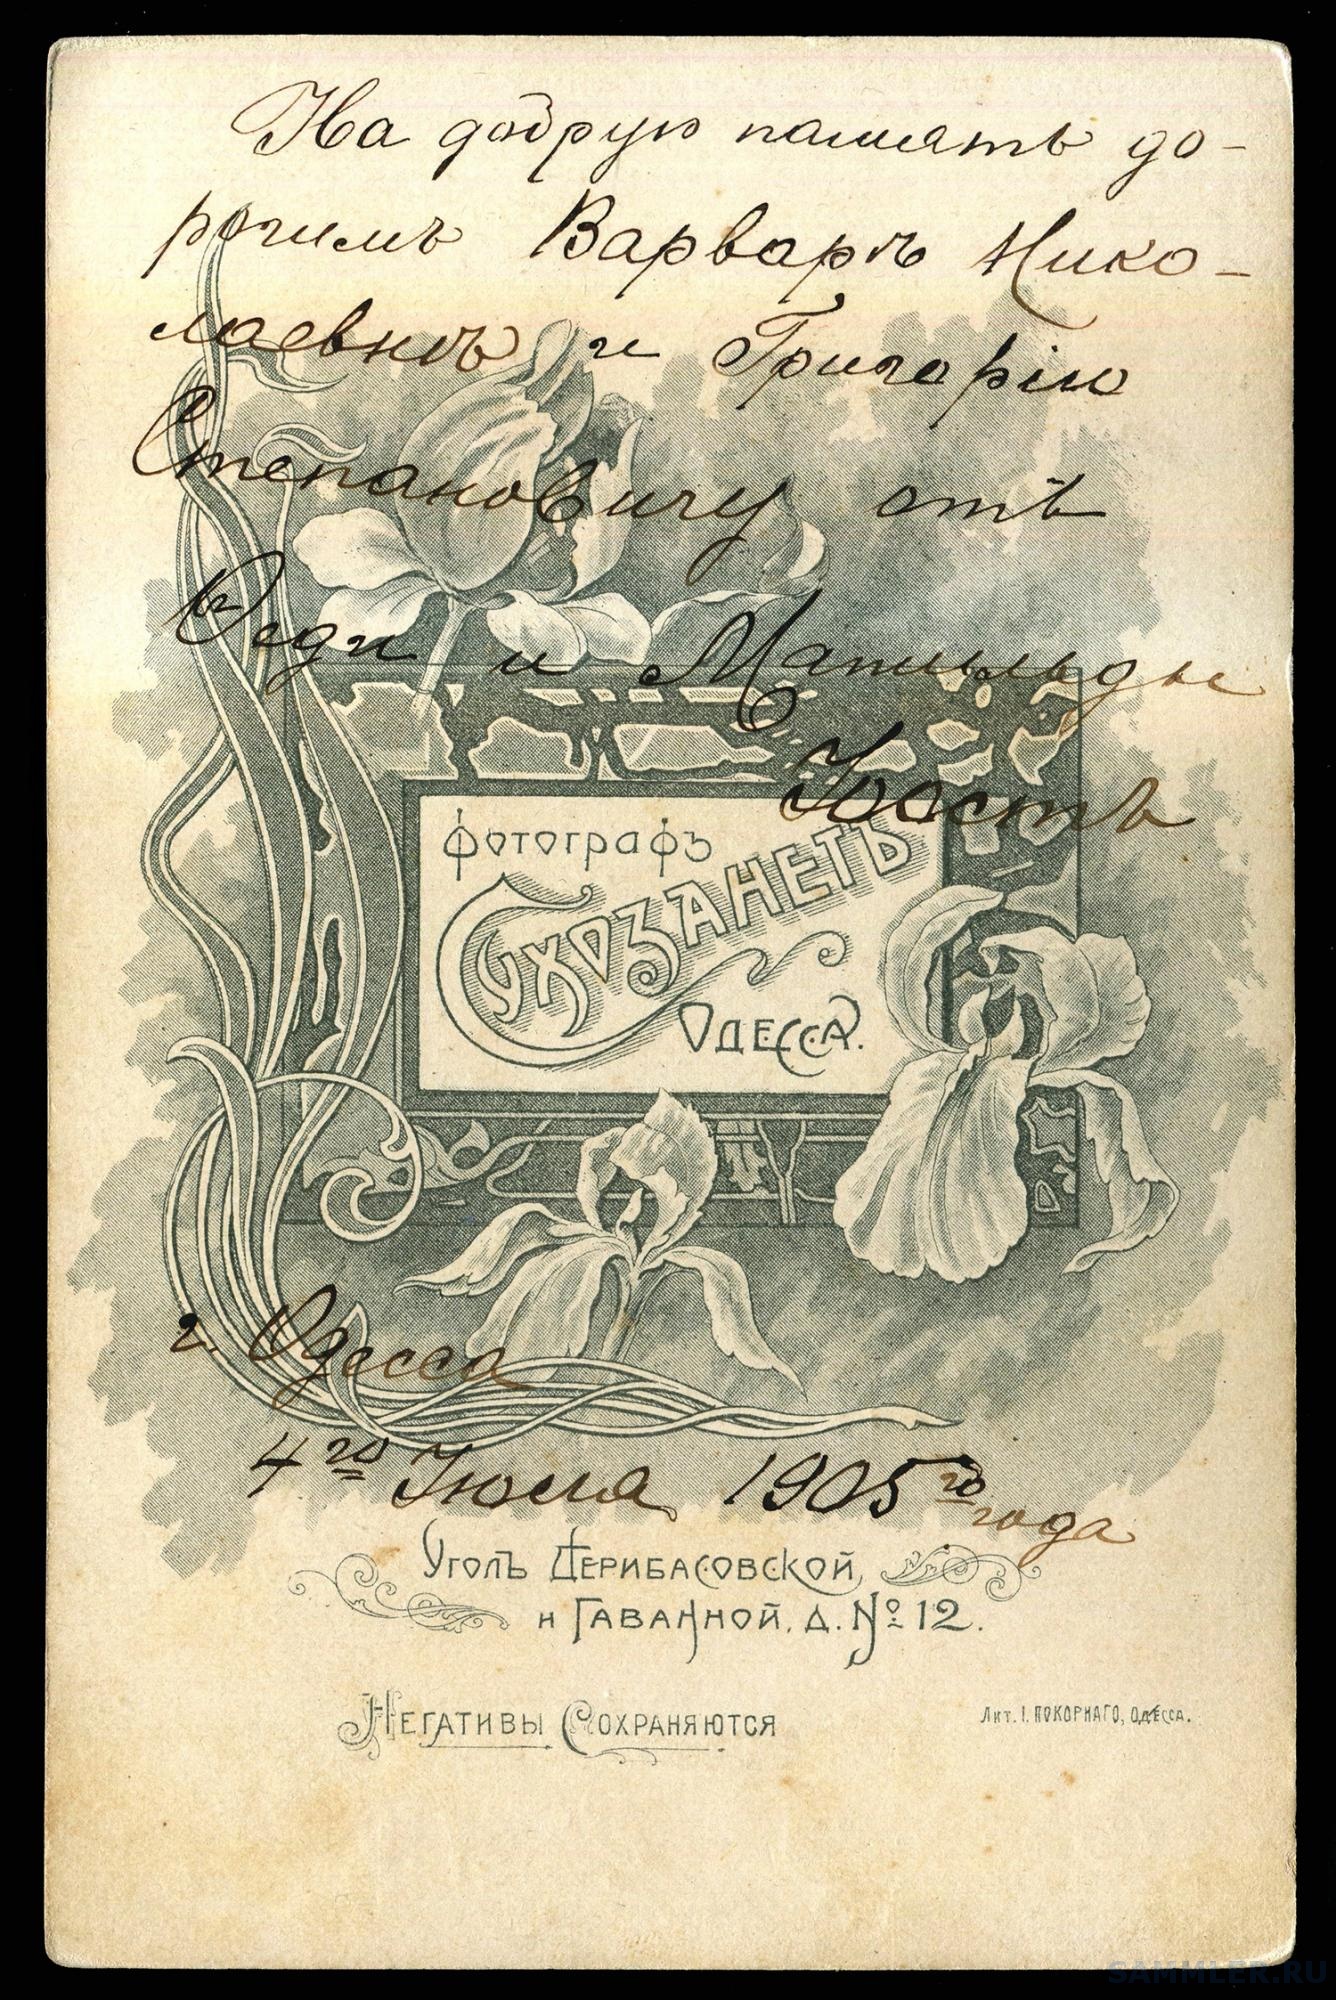 На добрую память до-
рогимъ Варварѣ Нико-
лаевнѣ и Григорію
Степановичу отъ
Феди и Матильды
Юостъ
Фотографъ
Сухозанетъ
Одесса.
г. Одесса
4го Июля 1905го года
Уголъ Дерибасовской,
и Гаванной, д. № 12.
Негативы Сохраняются
Лит. І. Покорнаго, Одесса.
SAMMLER.RU